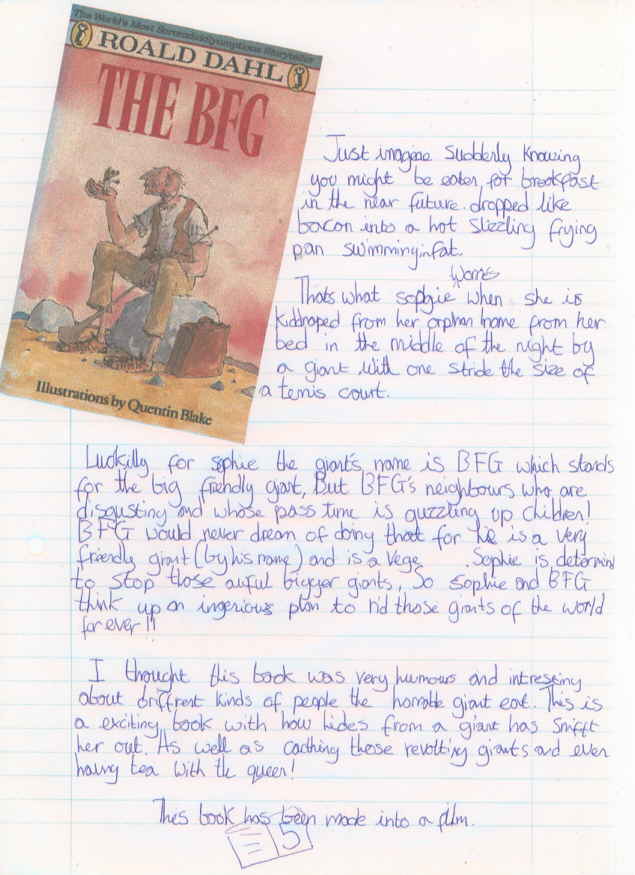 The World's Most Scrumdiddlyumptious Storyteller
ROALD DAHL
THE BFG
Illustrations by Quentin Blake
Just imagine suddenly knowing
you might be eaten for breakfast
in the near future. dropped like
bacon into a hot slizzling frying
pan swimming in fat.
Thats what sophie worries when she is
kidnaped from her orphan home from her
bed in the middle of the night by
a giant with one stride the size of
a tennis court.
Luckilly for sophie the giant's name is BFG which stands
for the big friendly giant, But BFG's neighbours who are
disgusting and whose pass time is guzzling up children!
BFG would never dream of doing that for he is a very
friendly giant (by his name) and is a vege Sophie is determind
to stop those awful bigger giants, So sophie and BFG
think up an ingenious plan to rid those giants of the world
for ever!!
I thought this book was very humours and intresting
about driffrent kinds of people the horrable giant eat. This is
a exciting book with how hides from a giant has snifft
her out. As well as cacthing those revolting giants and even
having tea with the queen!
This book has been made into a film.
5